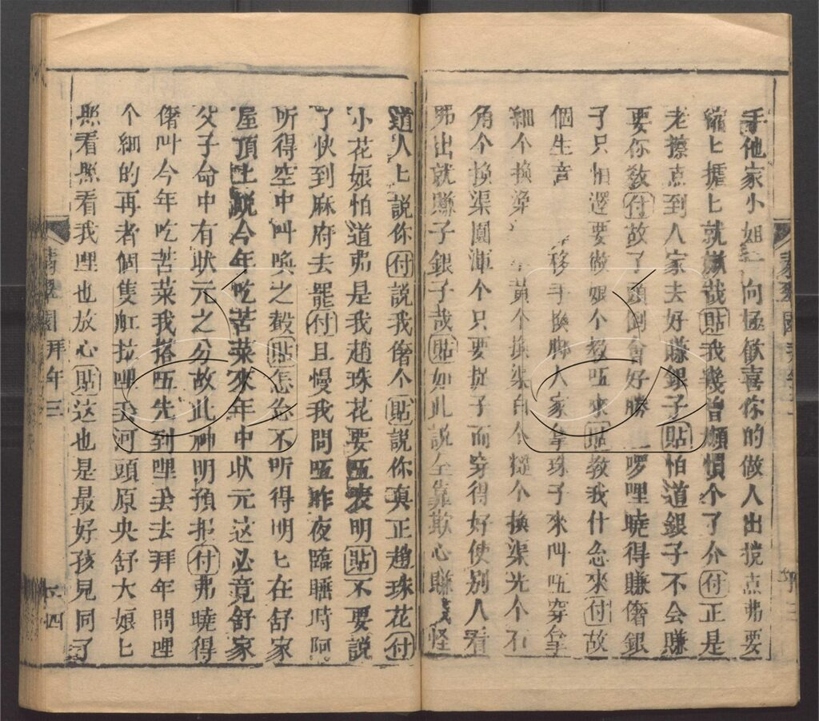 手他家小姐一向極歡喜你的做人出攪点弗要
縮匕搪匕就嫌哉貼我幾曾煩慣个了介付正是
老擦点到人家去好賺銀子貼怕道銀子不会賺
要你敎付故了頭倒會好勝一啰哩曉得賺儕銀
子只怕還要做娘个抝咗來貼敎我什怎來付故
個生意移手換脚人家拿珠子來叫咗穿拿
細个換渠黃个換渠白个糙个換渠光个不
角个換渠圓渾个只要捉子面穿得好使别人看
弗出就賺子銀子哉貼如此說全靠欺心賺錢怪
道人匕說你付說我儕个貼說你真正趙珠花付
小花娘怕道弗是我趙珠花要咗表明貼不要說
了快到麻府去罷付且慢我問咗昨夜臨睡時阿
听得空中叫喚之聲貼怎么不听得明匕在舒家
屋頂上說今年吃苦菜來年中状元这必竟舒家
父子命中有狀元之分故此神明預报付弗曉得
儕叫今年吃苦菜我搭咗先到哩厾去拜年問哩
个細的再者個隻舡拉哩厾河頭原央舒大娘匕
照看照看我哩也放心貼这也是最好孩見同了
翡翠園拜年三
四